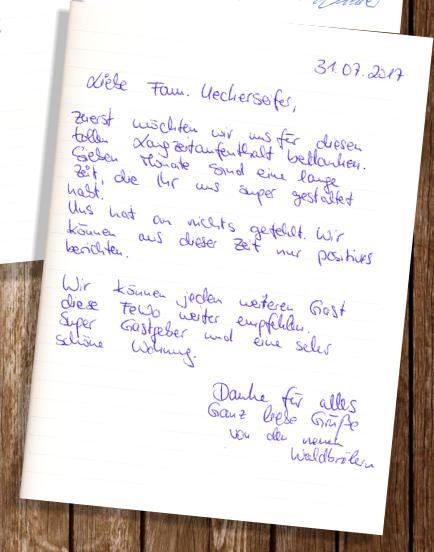 31.07.2017
Liebe Fam. Ueckerseifer,
zuerst möchten wir uns für diesen
tollen Langzeitaufenthalt bedanken.
Sieben Monate sind eine lange
Zeit, die Ihr uns super gestaltet
habt.
Uns hat an nichts gefehlt. Wir
können aus dieser Zeit nur positives
berichten.
Wir können jeden weiteren Gast
diese FeWo weiter empfehlen.
Super Gastgeber und eine sehr
schöne Wohnung.
Danke für alles
Ganz liebe Grüße
von den neuen
Waldbrölern